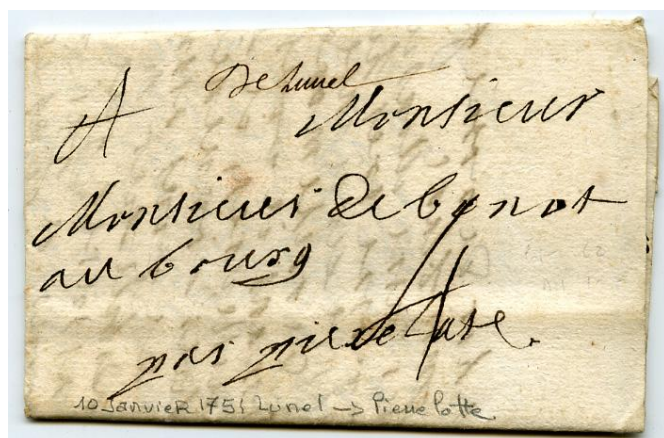 De Lunel
A Monsieur
Monsieur De benot
au bourg
par pierrelate.
10 Janvier 1751 Lunel -> Pierrelatte